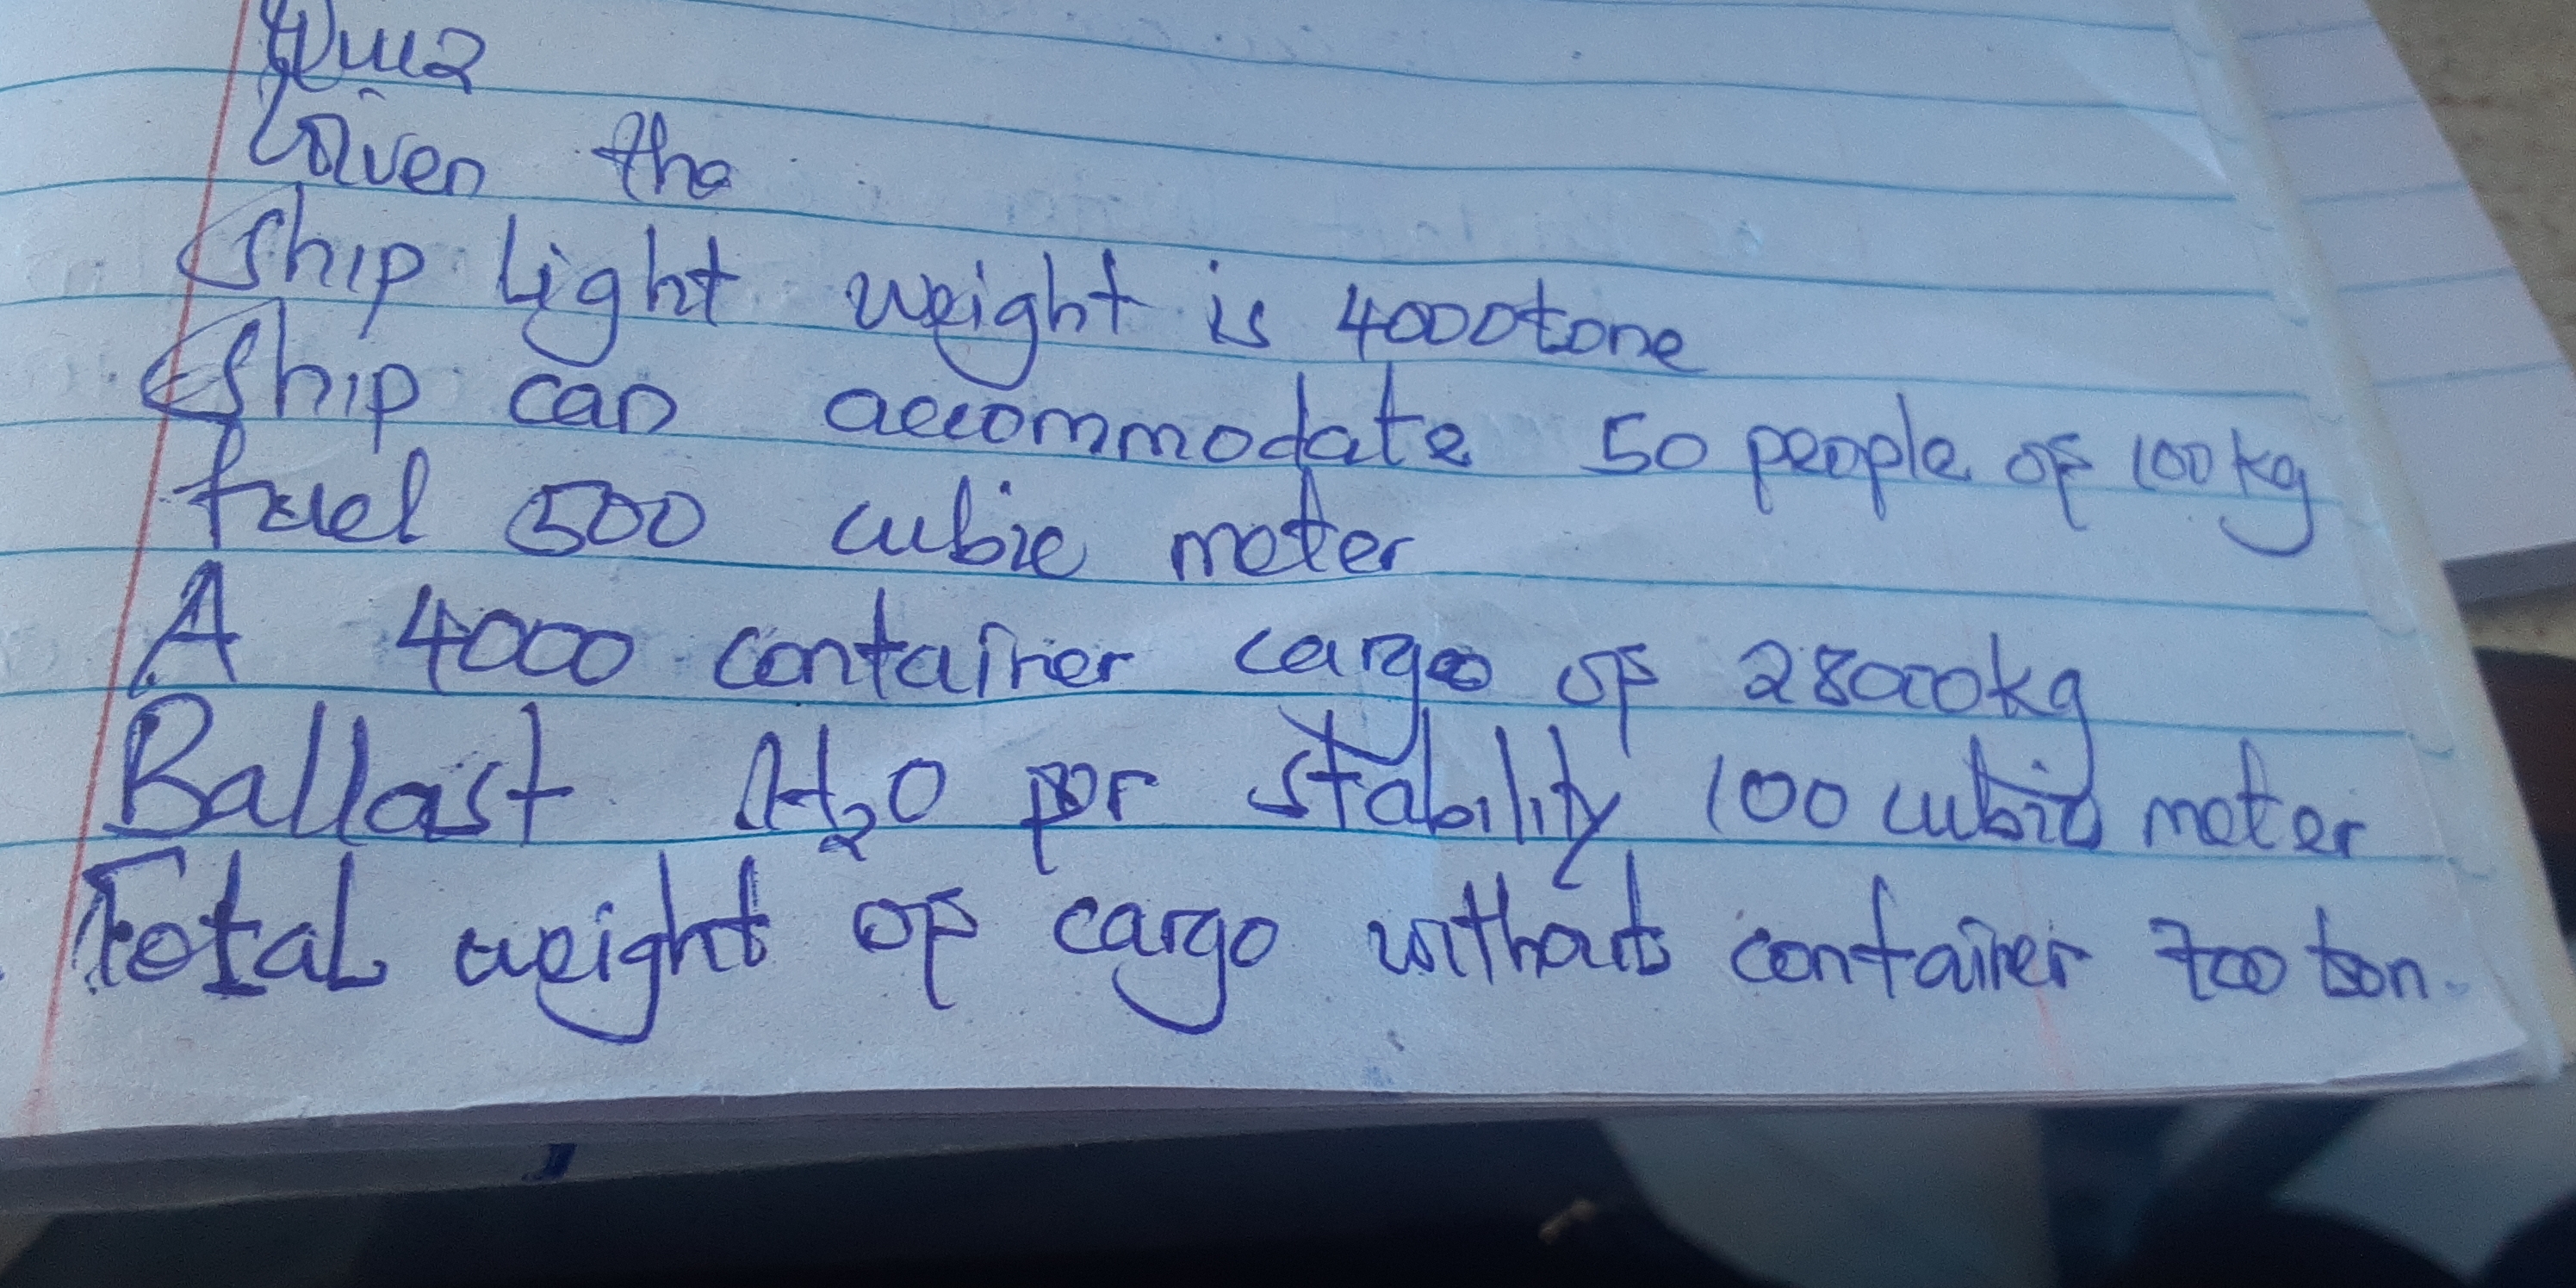 Quiz
Given the
Ship light weight is 4000tone
Ship can accommodate 50 people of 100kg
fuel 500 cubic meter
A 4000 container cargo of 28000kg
Ballast H₂O for stability 100 cubic meter
Total weight of cargo without container 700 ton.